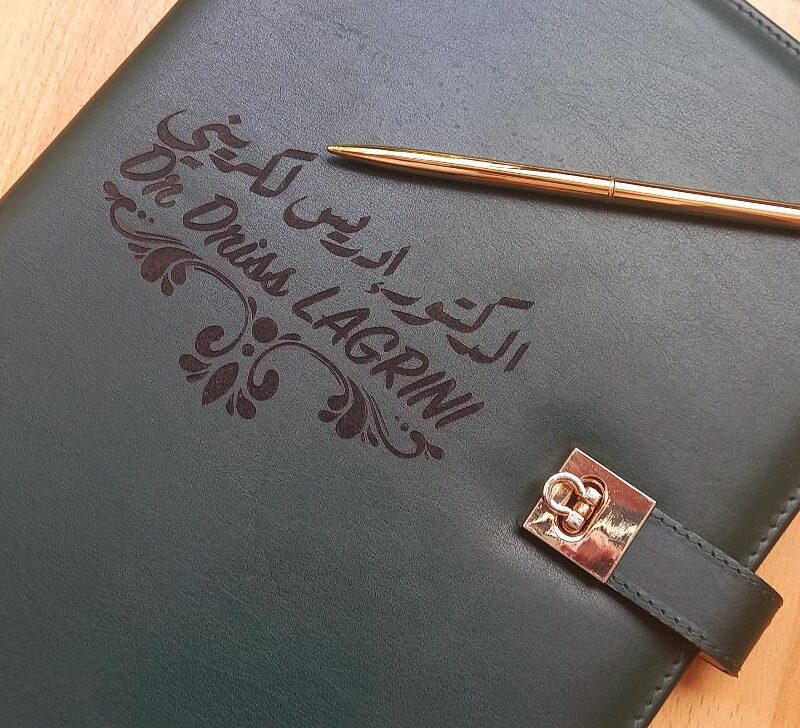 الدكتور إدريس لكريني
Dr Driss LAGRINI